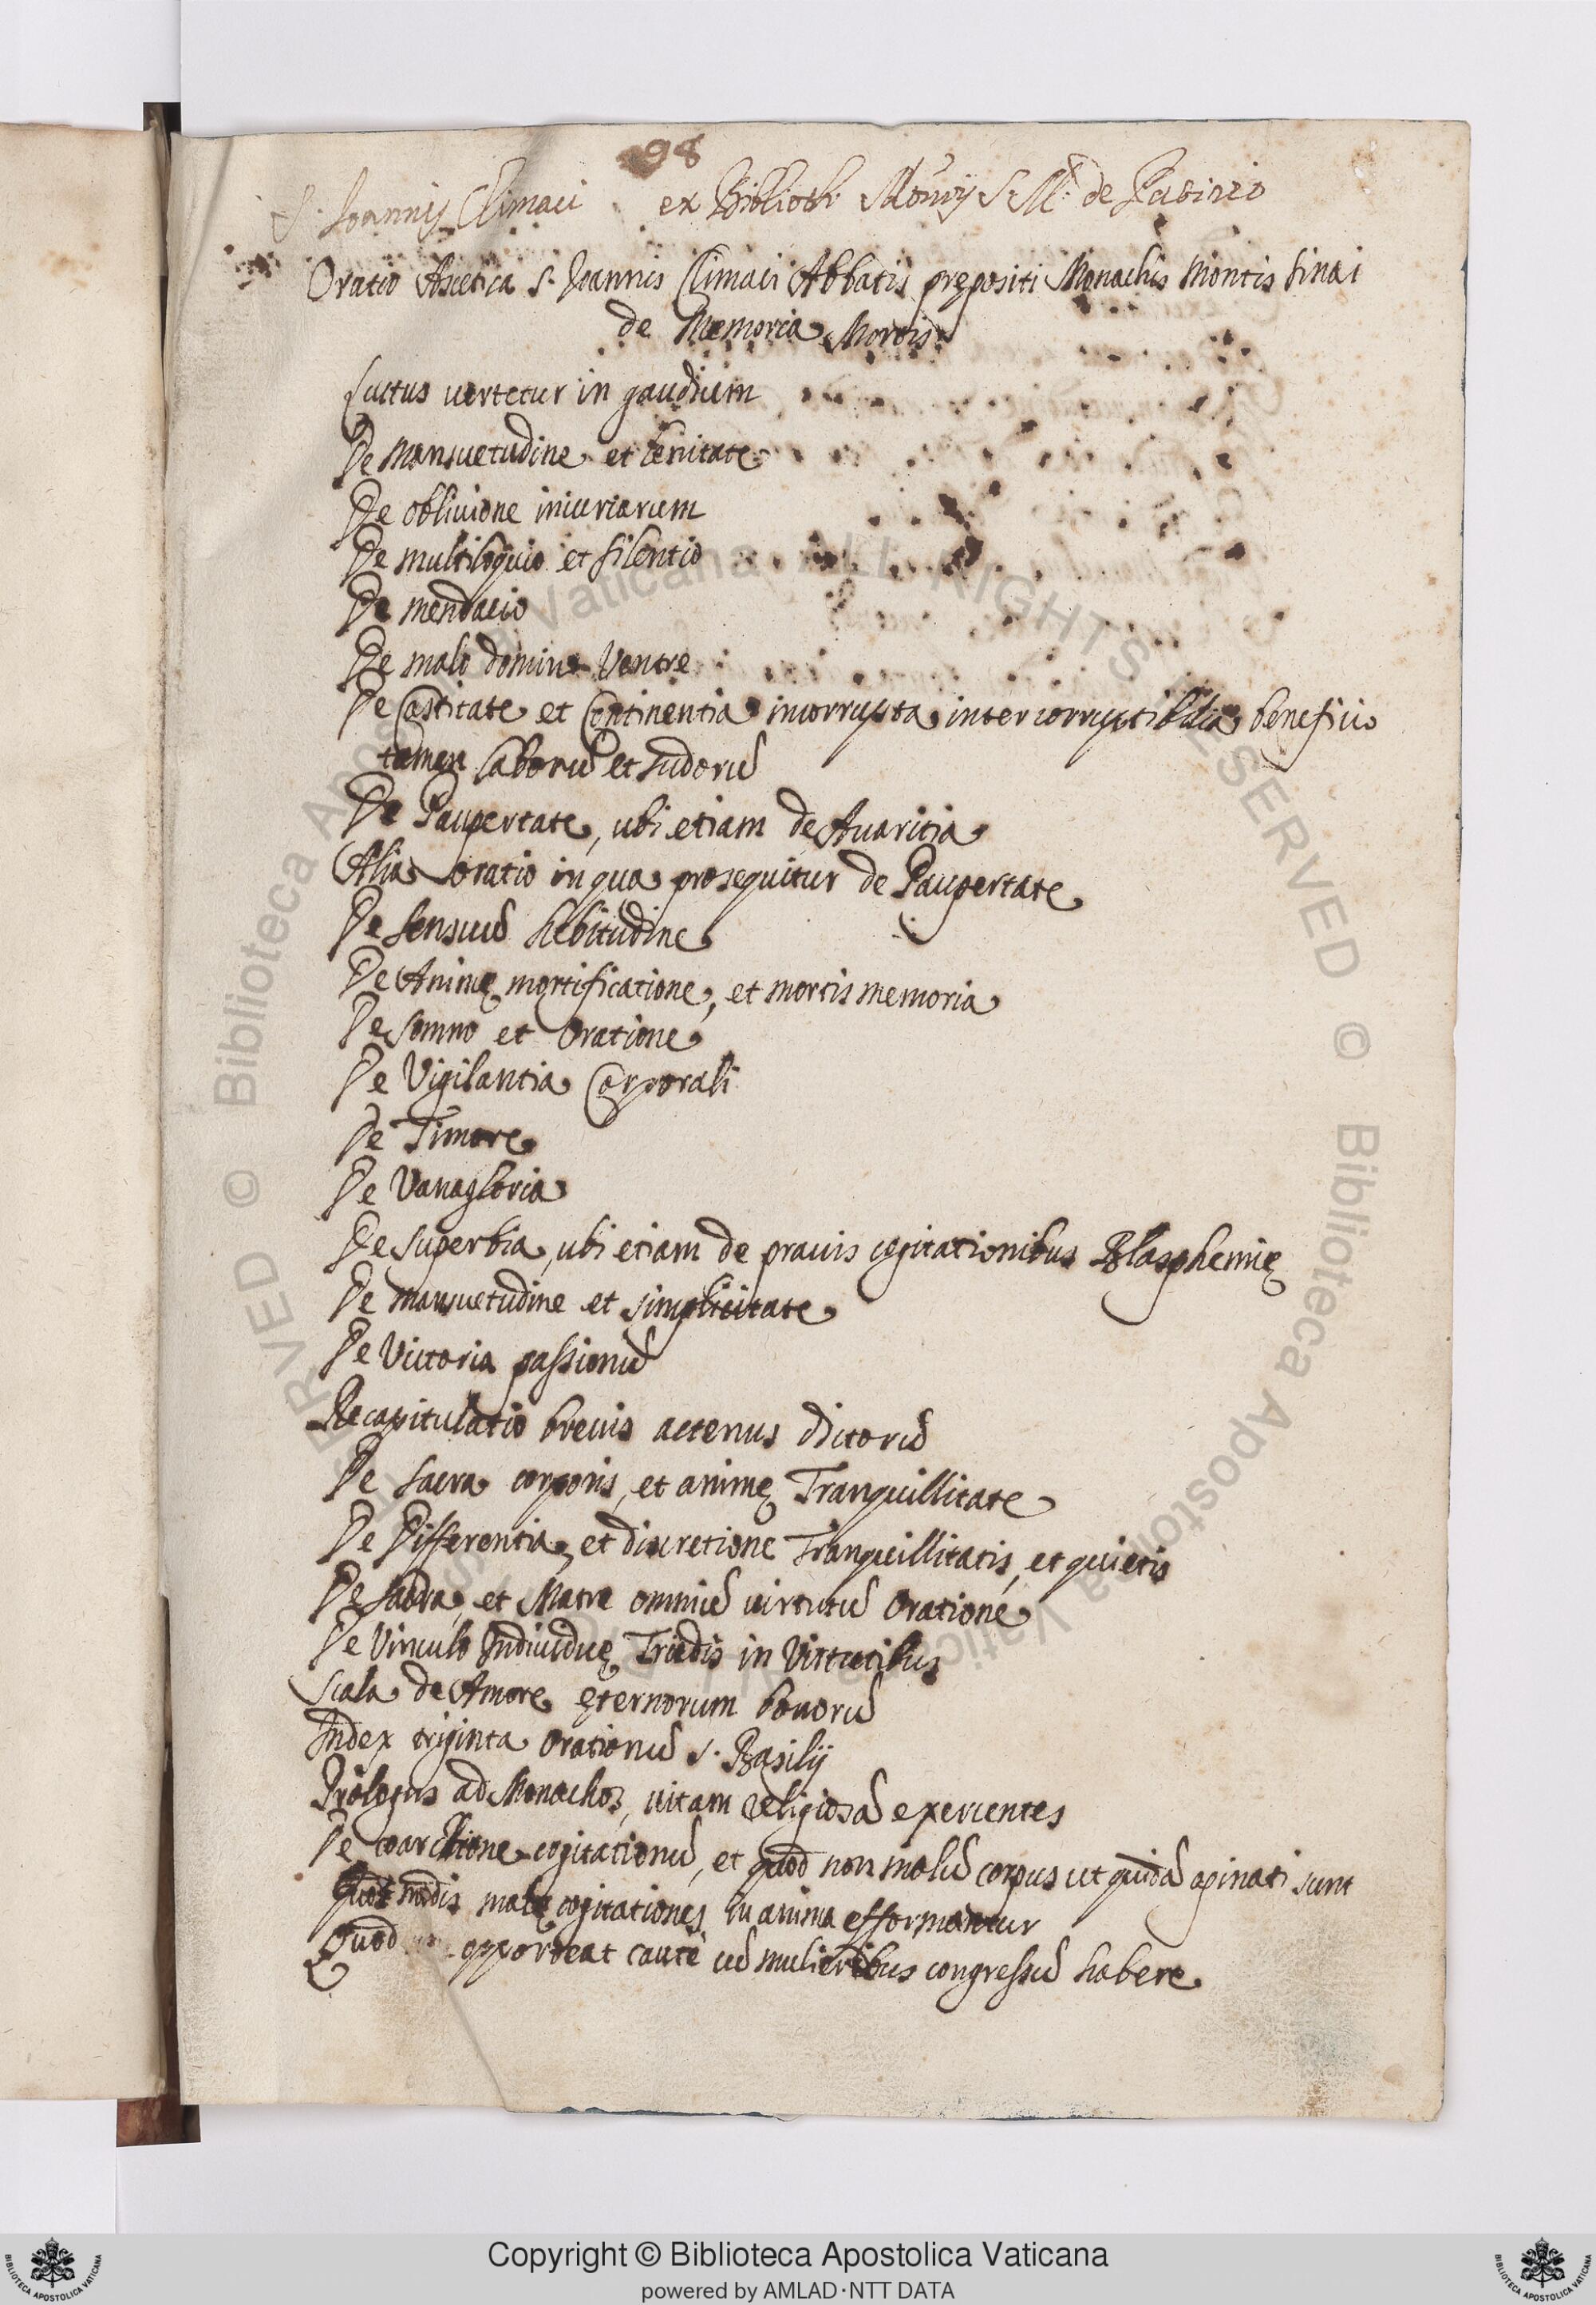 98
S. Joannis Climaci ex Biblioth. Mon̄ij S. M. de Patirio
Oratio Ascetica S. Joannis Climaci Abbatis prępositi Monachis Montis Sinai
de Memoria Mortis
Luctus vertetur in gaudium
De Mansuetudine et lenitate
De obliuione iniuriarum
De multiloquio et silentio
De mendacio
De malo domino Ventre
De Castitate et Continentia incorrupta inter corruptibilia beneficio
tamen laborū et sudorū
De Paupertate, ubi etiam de Auaritia
Alia oratio in qua prosequitur de Paupertate
De sensuū hebitudine
De Animę mortificatione, et mortis memoria
De somno et Oratione
De Vigilantia Corporali
De Timore
De Vanagloria
De Superbia, ubi etiam de prauis cogitationibus Blasphemię
De mansuetudine et simplicitate
De Victoria passionū
Recapitulatio breuis actenus dictorū
De sacra corporis, et animę Tranquillitate
De Differentia, et discretione Tranquillitatis, et quietis
De sacra, et Matre omniū uirtutū Oratione
De Vinculo Indiuiduę Triadis in Virtutibus
Scala de Amore ęternorum bonorū
Index triginta Orationū S. Basilij
Prologus ad Monachos, uitam religiosā exercentes
De coarctione cogitationū, et quod non malū corpus ut quidā opinati sunt
Quot modis malę cogitationes in anima efformantur
Quod opporteat cautè cū mulieribus congressū habere
© Biblioteca Apostolica Vaticana ALL RIGHTS RESERVED © Biblioteca Apostolica Vaticana ALL RIGHTS RESERVED
Copyright © Biblioteca Apostolica Vaticana
powered by AMLAD·NTT DATA
BIBLIOTECA APOSTOLICA VATICANA
BIBLIOTECA APOSTOLICA VATICANA